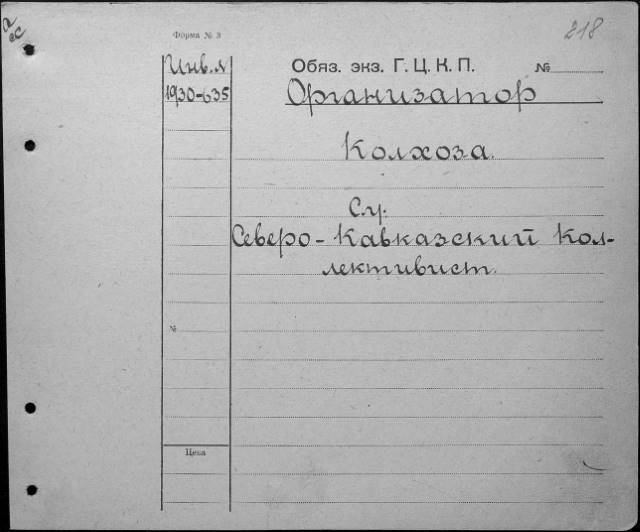 Форма № 3
218
Инв. л
Обяз. экз. Г. Ц. К. П. №
1930-635
Организатор
Колхоза.
См.
Северо-Кавказский Кол-
лективист.
№
Цена